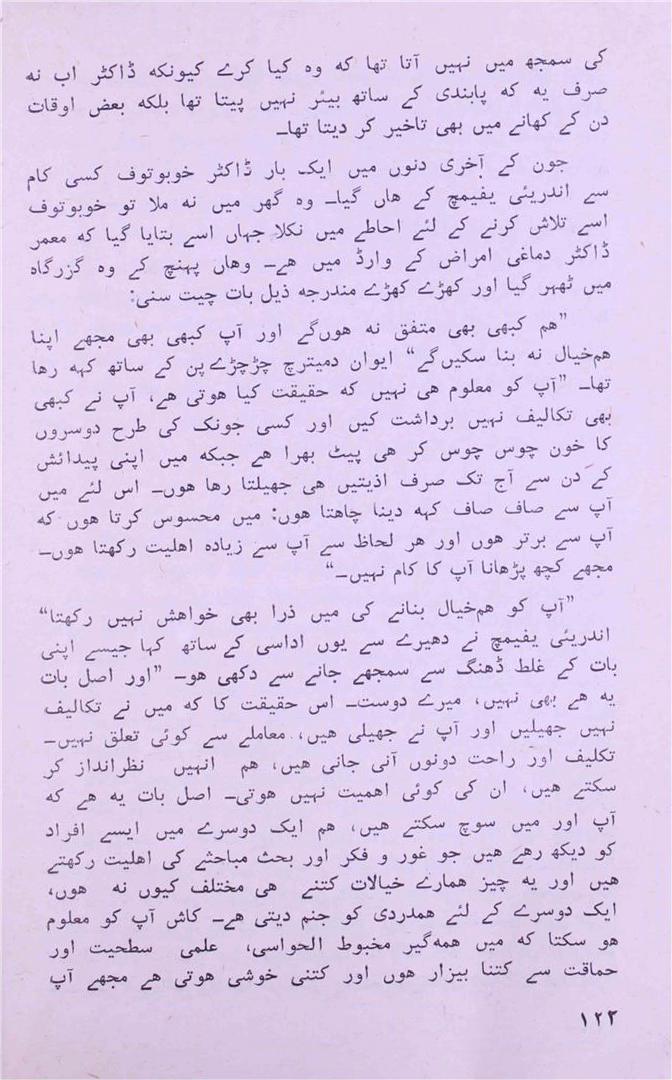 کی سمجھ میں نہیں آتا تھا کہ وہ کیا کرے کیونکہ ڈاکٹر اب نہ
صرف یہ کہ پابندی کے ساتھ بیئر نہیں پیتا تھا بلکہ بعض اوقات
دن کے کھانے میں بھی تاخیر کر دیتا تھا۔
جون کے آخری دنوں میں ایک بار ڈاکٹر خوبوتوف کسی کام
سے اندریئی یفیمچ کے ھاں گیا۔ وہ گھر میں نہ ملا تو خوبوتوف
اسے تلاش کرنے کے لئے احاطے میں نکلا جہاں اسے بتایا گیا کہ معمر
ڈاکٹر دماغی امراض کے وارڈ میں ھے۔ وھاں پہنچ کے وہ گزرگاہ
میں ٹھہر گیا اور کھڑے کھڑے مندرجہ ذیل بات چیت سنی:
”ھم کبھی بھی متفق نہ ھوں گے اور آپ کبھی بھی مجھے اپنا
ھم خیال نہ بنا سکیں گے“ ایوان دمیترچ چڑچڑے پن کے ساتھ کہہ رھا
تھا۔ ”آپ کو معلوم ھی نہیں کہ حقیقت کیا ھوتی ھے، آپ نے کبھی
بھی تکالیف نہیں برداشت کیں اور کسی جونک کی طرح دوسروں
کا خون چوس چوس کر ھی پیٹ بھرا ھے جبکہ میں اپنی پیدائش
کے دن سے آج تک صرف اذیتیں ھی جھیلتا رھا ھوں۔ اس لئے میں
آپ سے صاف صاف کہہ دینا چاھتا ھوں: میں محسوس کرتا ھوں کہ
آپ سے برتر ھوں اور ھر لحاظ سے آپ سے زیادہ اھلیت رکھتا ھوں۔
مجھے کچھ پڑھانا آپ کا کام نہیں۔“
”آپ کو ھم خیال بنانے کی میں ذرا بھی خواھش نہیں رکھتا“
اندریئی یفیمچ نے دھیرے سے یوں اداسی کے ساتھ کہا جیسے اپنی
بات کے غلط ڈھنگ سے سمجھے جانے سے دکھی ھو۔ ”اور اصل بات
یہ ھے بھی نہیں، میرے دوست۔ اس حقیقت کا کہ میں نے تکالیف
نہیں جھیلیں اور آپ نے جھیلی ھیں، معاملے سے کوئی تعلق نہیں۔
تکلیف اور راحت دونوں آنی جانی ھیں، ھم انہیں نظرانداز کر
سکتے ھیں، ان کی کوئی اھمیت نہیں ھوتی۔ اصل بات یہ ھے کہ
آپ اور میں سوچ سکتے ھیں، ھم ایک دوسرے میں ایسے افراد
کو دیکھ رھے ھیں جو غور و فکر اور بحث مباحثے کی اھلیت رکھتے
ھیں اور یہ چیز ھمارے خیالات کتنے ھی مختلف کیوں نہ ھوں،
ایک دوسرے کے لئے ھمدردی کو جنم دیتی ھے۔ کاش آپ کو معلوم
ھو سکتا کہ میں ھمہ گیر مخبوط الحواسی، علمی سطحیت اور
حماقت سے کتنا بیزار ھوں اور کتنی خوشی ھوتی ھے مجھے آپ
۱۲۳